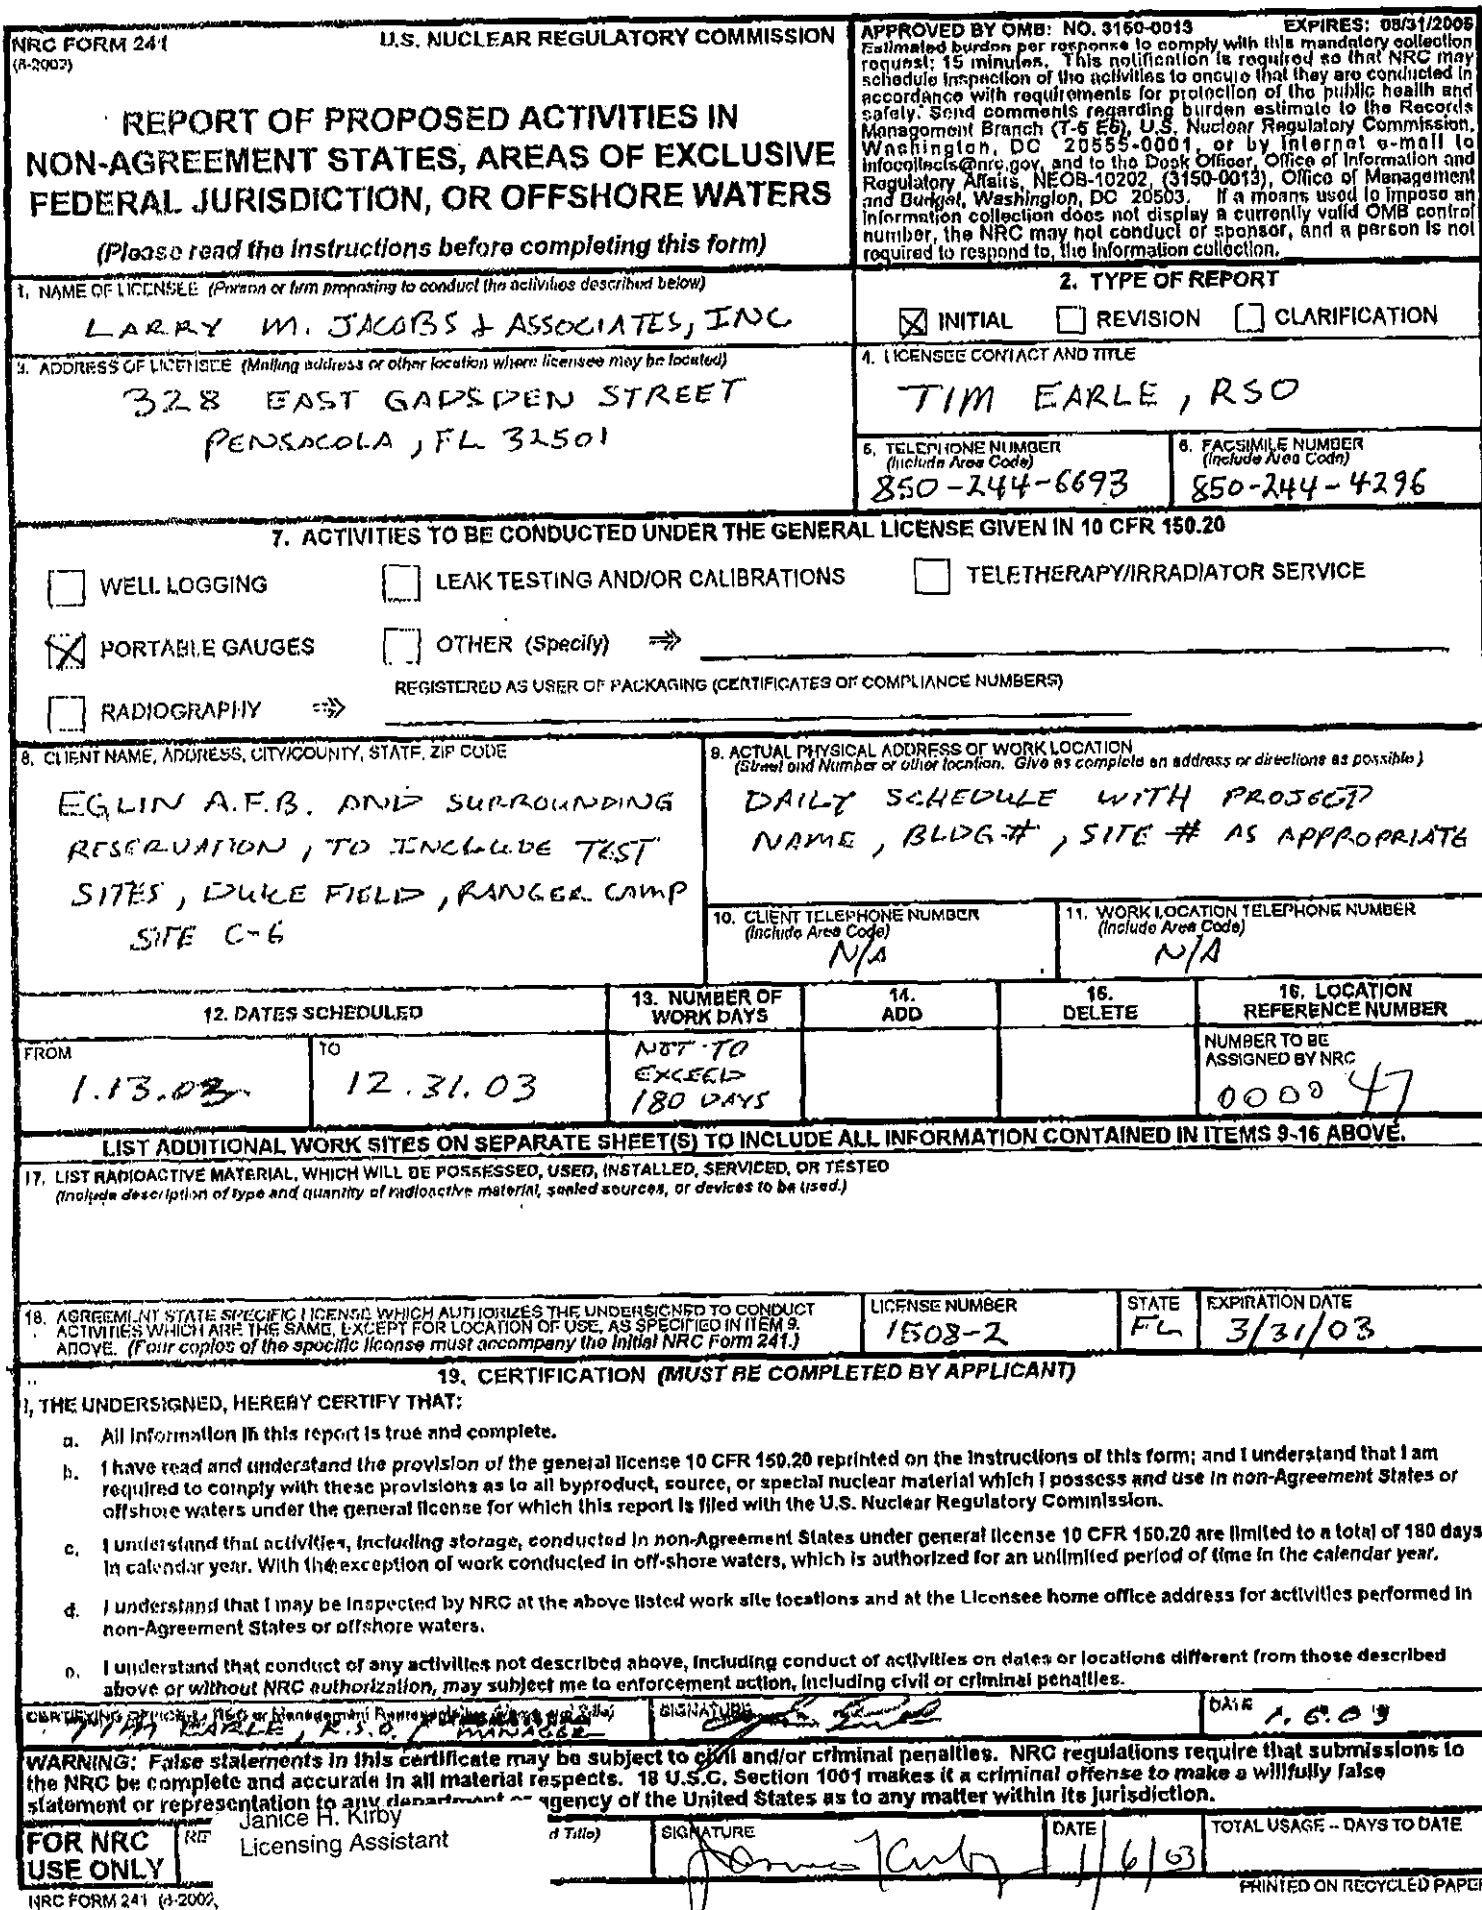 NRC FORM 241
(8-2002)
U.S. NUCLEAR REGULATORY COMMISSION
REPORT OF PROPOSED ACTIVITIES IN
NON-AGREEMENT STATES, AREAS OF EXCLUSIVE
FEDERAL JURISDICTION, OR OFFSHORE WATERS
(Please read the instructions before completing this form)
APPROVED BY OMB: NO. 3150-0013 EXPIRES: 08/31/2005
Estimated burden per response to comply with this mandatory collection
request: 15 minutes. This notification is required so that NRC may
schedule inspection of the activities to ensure that they are conducted in
accordance with requirements for protection of the public health and
safety. Send comments regarding burden estimate to the Records
Management Branch (T-6 E6), U.S. Nuclear Regulatory Commission,
Washington, DC 20555-0001, or by Internet e-mail to
infocollects@nrc.gov, and to the Desk Officer, Office of Information and
Regulatory Affairs, NEOB-10202, (3150-0013), Office of Management
and Budget, Washington, DC 20503. If a means used to impose an
information collection does not display a currently valid OMB control
number, the NRC may not conduct or sponsor, and a person is not
required to respond to, the information collection.
1. NAME OF LICENSEE (Person or firm proposing to conduct the activities described below)
LARRY M. JACOBS & ASSOCIATES, INC
2. TYPE OF REPORT
INITIAL REVISION CLARIFICATION
3. ADDRESS OF LICENSEE (Mailing address or other location where licensee may be located)
328 EAST GADSDEN STREET
PENSACOLA, FL 32501
4. LICENSEE CONTACT AND TITLE
TIM EARLE, RSO
5. TELEPHONE NUMBER
(Include Area Code)
850-244-6693
6. FACSIMILE NUMBER
(Include Area Code)
850-244-4296
7. ACTIVITIES TO BE CONDUCTED UNDER THE GENERAL LICENSE GIVEN IN 10 CFR 150.20
WELL LOGGING LEAK TESTING AND/OR CALIBRATIONS TELETHERAPY/IRRADIATOR SERVICE
PORTABLE GAUGES OTHER (Specify)
REGISTERED AS USER OF PACKAGING (CERTIFICATES OF COMPLIANCE NUMBERS)
RADIOGRAPHY
8. CLIENT NAME, ADDRESS, CITY/COUNTY, STATE, ZIP CODE
EGLIN A.F.B. AND SURROUNDING
RESERVATION, TO INCLUDE TEST
SITES, DUKE FIELD, RANGER CAMP
SITE C-6
9. ACTUAL PHYSICAL ADDRESS OF WORK LOCATION
(Street and Number or other location. Give as complete an address or directions as possible)
DAILY SCHEDULE WITH PROJECT
NAME, BLDG #, SITE # AS APPROPRIATE
10. CLIENT TELEPHONE NUMBER
(Include Area Code)
N/A
11. WORK LOCATION TELEPHONE NUMBER
(Include Area Code)
N/A
12. DATES SCHEDULED
13. NUMBER OF
WORK DAYS
14.
ADD
15.
DELETE
16. LOCATION
REFERENCE NUMBER
FROM
1.13.03
TO
12.31.03
NOT TO
EXCEED
180 DAYS
NUMBER TO BE
ASSIGNED BY NRC
000047
LIST ADDITIONAL WORK SITES ON SEPARATE SHEET(S) TO INCLUDE ALL INFORMATION CONTAINED IN ITEMS 9-16 ABOVE.
17. LIST RADIOACTIVE MATERIAL, WHICH WILL BE POSSESSED, USED, INSTALLED, SERVICED, OR TESTED
(Include description of type and quantity of radioactive material, sealed sources, or devices to be used.)
18. AGREEMENT STATE SPECIFIC LICENSE WHICH AUTHORIZES THE UNDERSIGNED TO CONDUCT
ACTIVITIES WHICH ARE THE SAME, EXCEPT FOR LOCATION OF USE, AS SPECIFIED IN ITEM 9.
ABOVE. (Four copies of the specific license must accompany the initial NRC Form 241.)
LICENSE NUMBER
1508-2
STATE
FL
EXPIRATION DATE
3/31/03
19. CERTIFICATION (MUST BE COMPLETED BY APPLICANT)
I, THE UNDERSIGNED, HEREBY CERTIFY THAT:
a. All information in this report is true and complete.
b. I have read and understand the provision of the general license 10 CFR 150.20 reprinted on the instructions of this form; and I understand that I am
required to comply with these provisions as to all byproduct, source, or special nuclear material which I possess and use in non-Agreement States or
offshore waters under the general license for which this report is filed with the U.S. Nuclear Regulatory Commission.
c. I understand that activities, including storage, conducted in non-Agreement States under general license 10 CFR 150.20 are limited to a total of 180 days
in calendar year. With the exception of work conducted in off-shore waters, which is authorized for an unlimited period of time in the calendar year.
d. I understand that I may be inspected by NRC at the above listed work site locations and at the Licensee home office address for activities performed in
non-Agreement States or offshore waters.
e. I understand that conduct of any activities not described above, including conduct of activities on dates or locations different from those described
above or without NRC authorization, may subject me to enforcement action, including civil or criminal penalties.
CERTIFYING OFFICER - RSO or Management Representative
TIM EARLE, R.S.O. / MANAGER
SIGNATURE
DATE
1.6.03
WARNING: False statements in this certificate may be subject to civil and/or criminal penalties. NRC regulations require that submissions to
the NRC be complete and accurate in all material respects. 18 U.S.C. Section 1001 makes it a criminal offense to make a willfully false
statement or representation to any department or agency of the United States as to any matter within its jurisdiction.
FOR NRC
USE ONLY
Janice H. Kirby
Licensing Assistant
d Title)
SIGNATURE
DATE
1/6/03
TOTAL USAGE -- DAYS TO DATE
NRC FORM 241 (8-2002,
PRINTED ON RECYCLED PAPER